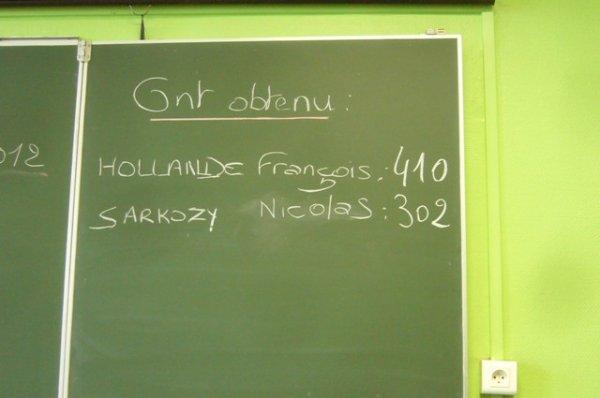 012
Ont obtenu :
HOLLANDE François : 410
SARKOZY Nicolas : 302